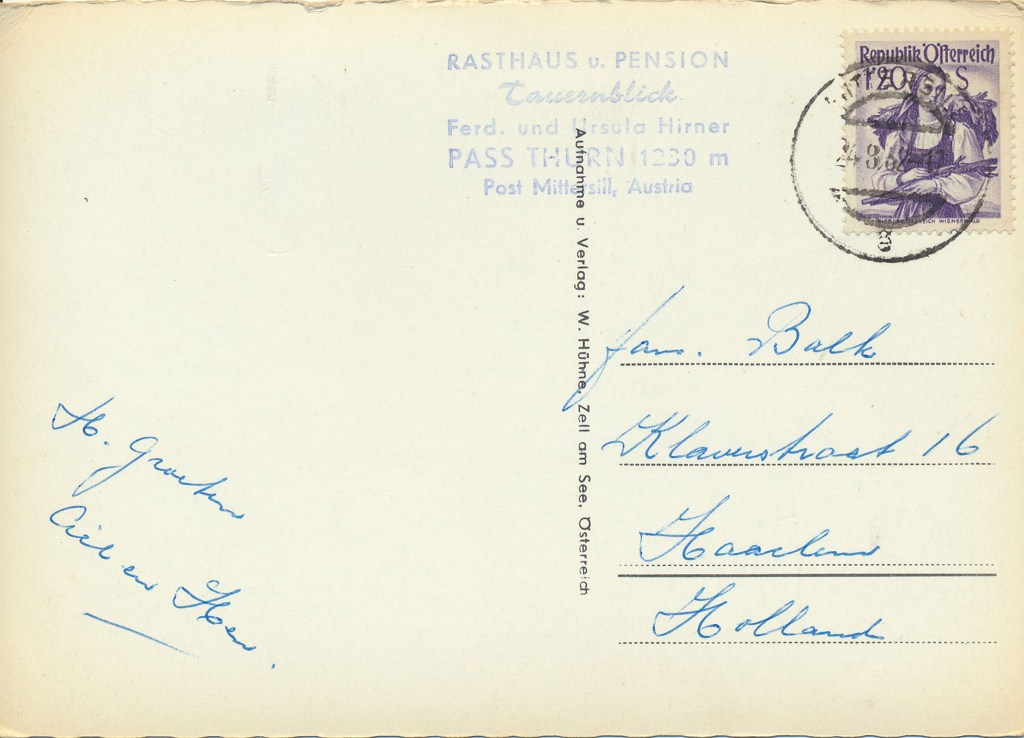 RASTHAUS u. PENSION
Tauernblick
Ferd. und Ursula Hirner
PASS THURN 1230 m
Post Mittersill, Austria
Republik Österreich
1'20 S
Aufnahme u. Verlag: W. Hühne, Zell am See, Österreich
fam. Balk
Klaverstraat 16
Haarlem
Holland
H. Groeten
en